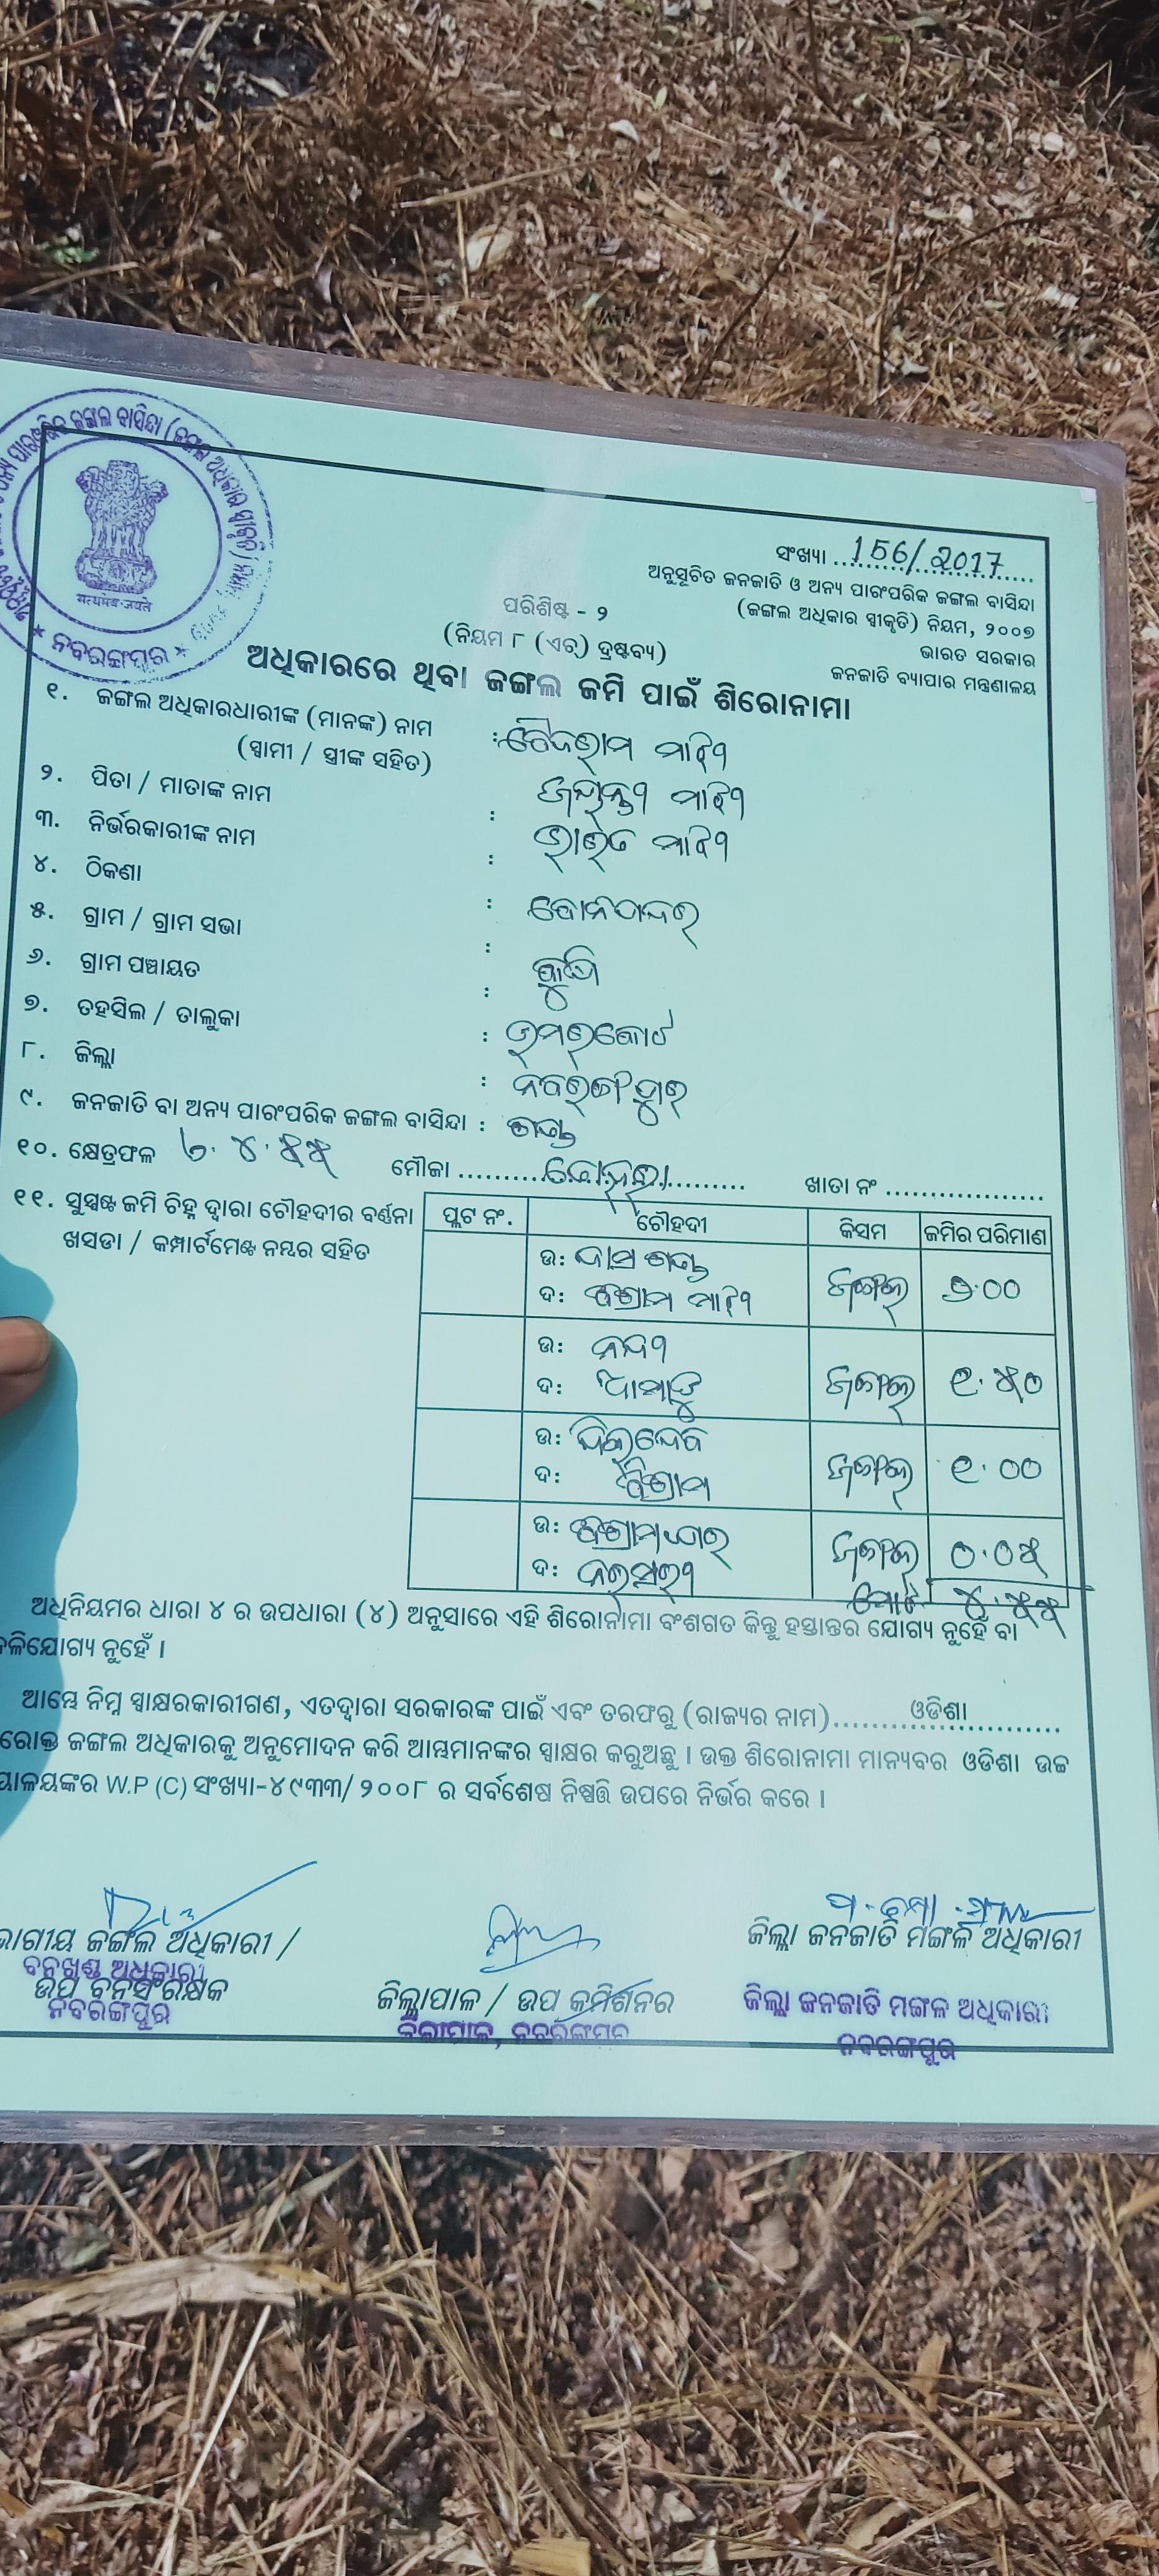 ପାରଂପରିକ ଜଙ୍ଗଲ ବାସିନ୍ଦା (ଜଙ୍ଗଲ ଅଧିକାର ସ୍ୱୀକୃତି)
सत्यमेव जयते
* ନବରଙ୍ଗପୁର *
ସଂଖ୍ୟା 156/2017
ଅନୁସୂଚିତ ଜନଜାତି ଓ ଅନ୍ୟ ପାରଂପରିକ ଜଙ୍ଗଲ ବାସିନ୍ଦା
(ଜଙ୍ଗଲ ଅଧିକାର ସ୍ୱୀକୃତି) ନିୟମ, ୨୦୦୭
ଭାରତ ସରକାର
ଜନଜାତି ବ୍ୟାପାର ମନ୍ତ୍ରଣାଳୟ
ପରିଶିଷ୍ଟ - ୨
(ନିୟମ ୮ (ଏଚ୍) ଦ୍ରଷ୍ଟବ୍ୟ)
ଅଧିକାରରେ ଥିବା ଜଙ୍ଗଲ ଜମି ପାଇଁ ଶିରୋନାମା
୧. ଜଙ୍ଗଲ ଅଧିକାରଧାରୀଙ୍କ (ମାନଙ୍କ) ନାମ : ମାଝୀ
(ସ୍ୱାମୀ / ସ୍ତ୍ରୀଙ୍କ ସହିତ)
୨. ପିତା / ମାତାଙ୍କ ନାମ : ମାଝୀ
୩. ନିର୍ଭରକାରୀଙ୍କ ନାମ : ମାଝୀ
୪. ଠିକଣା :
୫. ଗ୍ରାମ / ଗ୍ରାମ ସଭା :
୬. ଗ୍ରାମ ପଞ୍ଚାୟତ :
୭. ତହସିଲ / ତାଲୁକା : ଉମରକୋଟ
୮. ଜିଲ୍ଲା : ନବରଂଗପୁର
୯. ଜନଜାତି ବା ଅନ୍ୟ ପାରଂପରିକ ଜଙ୍ଗଲ ବାସିନ୍ଦା : ଗଣ୍ଡ
୧୦. କ୍ଷେତ୍ରଫଳ ୪.୫୫ ମୌଜା ଖାତା ନଂ
୧୧. ସୁସ୍ପଷ୍ଟ ଜମି ଚିହ୍ନ ଦ୍ୱାରା ଚୌହଦୀର ବର୍ଣ୍ଣନା
ଖସଡା / କମ୍ପାର୍ଟମେଣ୍ଟ ନମ୍ବର ସହିତ
ପ୍ଲଟ ନଂ. ଚୌହଦୀ କିସମ ଜମିର ପରିମାଣ
ଉ: ଗଣ୍ଡ
ଦ: ମାଝୀ ଜଙ୍ଗଲ ୨.୦୦
ଉ:
ଦ: ଜଙ୍ଗଲ ୧.୫୦
ଉ:
ଦ: ବିଶ୍ରାମ ଜଙ୍ଗଲ ୧.୦୦
ଉ:
ଦ: ଜଙ୍ଗଲ ୦.୦୫
ମୋଟ ୪.୫୫
ଅଧିନିୟମର ଧାରା ୪ ର ଉପଧାରା (୪) ଅନୁସାରେ ଏହି ଶିରୋନାମା ବଂଶଗତ କିନ୍ତୁ ହସ୍ତାନ୍ତର ଯୋଗ୍ୟ ନୁହେଁ ବା
ଳିଯୋଗ୍ୟ ନୁହେଁ ।
ଆମ୍ଭେ ନିମ୍ନ ସ୍ୱାକ୍ଷରକାରୀଗଣ, ଏତଦ୍ୱାରା ସରକାରଙ୍କ ପାଇଁ ଏବଂ ତରଫରୁ (ରାଜ୍ୟର ନାମ) ଓଡିଶା
ରୋକ୍ତ ଜଙ୍ଗଲ ଅଧିକାରକୁ ଅନୁମୋଦନ କରି ଆମ୍ଭମାନଙ୍କର ସ୍ୱାକ୍ଷର କରୁଅଛୁ । ଉକ୍ତ ଶିରୋନାମା ମାନ୍ୟବର ଓଡିଶା ଉଚ୍ଚ
ୟାଳୟଙ୍କର W.P (C) ସଂଖ୍ୟା-୪୯୩୩/୨୦୦୮ ର ସର୍ବଶେଷ ନିଷ୍ପତ୍ତି ଉପରେ ନିର୍ଭର କରେ ।
ଭାଗୀୟ ଜଙ୍ଗଲ ଅଧିକାରୀ /
ବନଖଣ୍ଡ ଅଧିକାରୀ
ଉପ ବନସଂରକ୍ଷକ
ନବରଙ୍ଗପୁର
ଜିଲ୍ଲାପାଳ / ଉପ କମିଶନର
ଜିଲ୍ଲାପାଳ, ନବରଙ୍ଗପୁର
ଜିଲ୍ଲା ଜନଜାତି ମଙ୍ଗଳ ଅଧିକାରୀ
ଜିଲ୍ଲା ଜନଜାତି ମଙ୍ଗଳ ଅଧିକାରୀ
ନବରଙ୍ଗପୁର